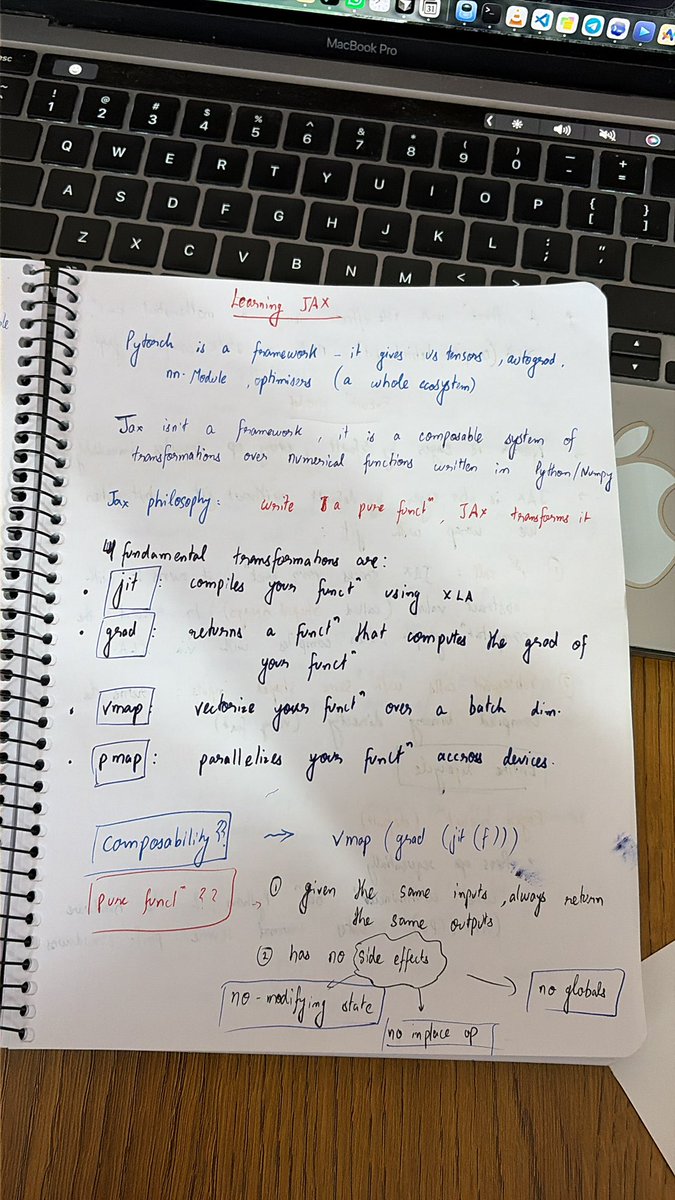 MacBook Pro
esc
! 1 @ 2 # 3 $ 4 % 5 ^ 6 & 7 * 8 ( 9 ) 0 _ - + =
Q W E R T Y U I O P { [ } ]
A S D F G H J K L : ; " '
Z X C V B N M <  >
Learning JAX
Pytorch is a framework - it gives us tensors, autograd,
nn-Module, optimisers (a whole ecosystem)
Jax isn't a framework, it is a composable system of
transformations over numerical functions written in Python/Numpy
Jax philosophy: write a pure functⁿ, JAX transforms it
4 fundamental transformations are:
• jit : compiles your functⁿ using XLA
• grad : returns a functⁿ that computes the grad of
your functⁿ
• vmap : vectorize your functⁿ over a batch dim.
• pmap : parallelizes your functⁿ accross devices.
composability?? → vmap (grad (jit (f)))
pure functⁿ ?? → ① given the same inputs, always return
the same outputs
② has no side effects
no-modifying state
no inplace op
no globals